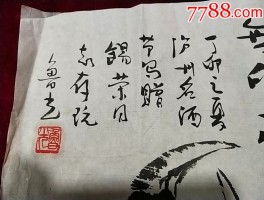 7788.com
丁卯之夏
泸州名酒
节写赠
锡荣同
志存玩
鲁光